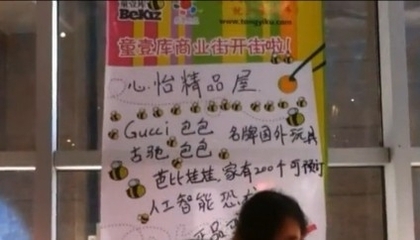 BeKiz
www.tongyiku.com
童壹库商业街开街啦!
心怡精品屋
Gucci 包包 名牌国外玩具
古驰 包包
芭比娃娃.家有200个可预订
人工智能恐龙